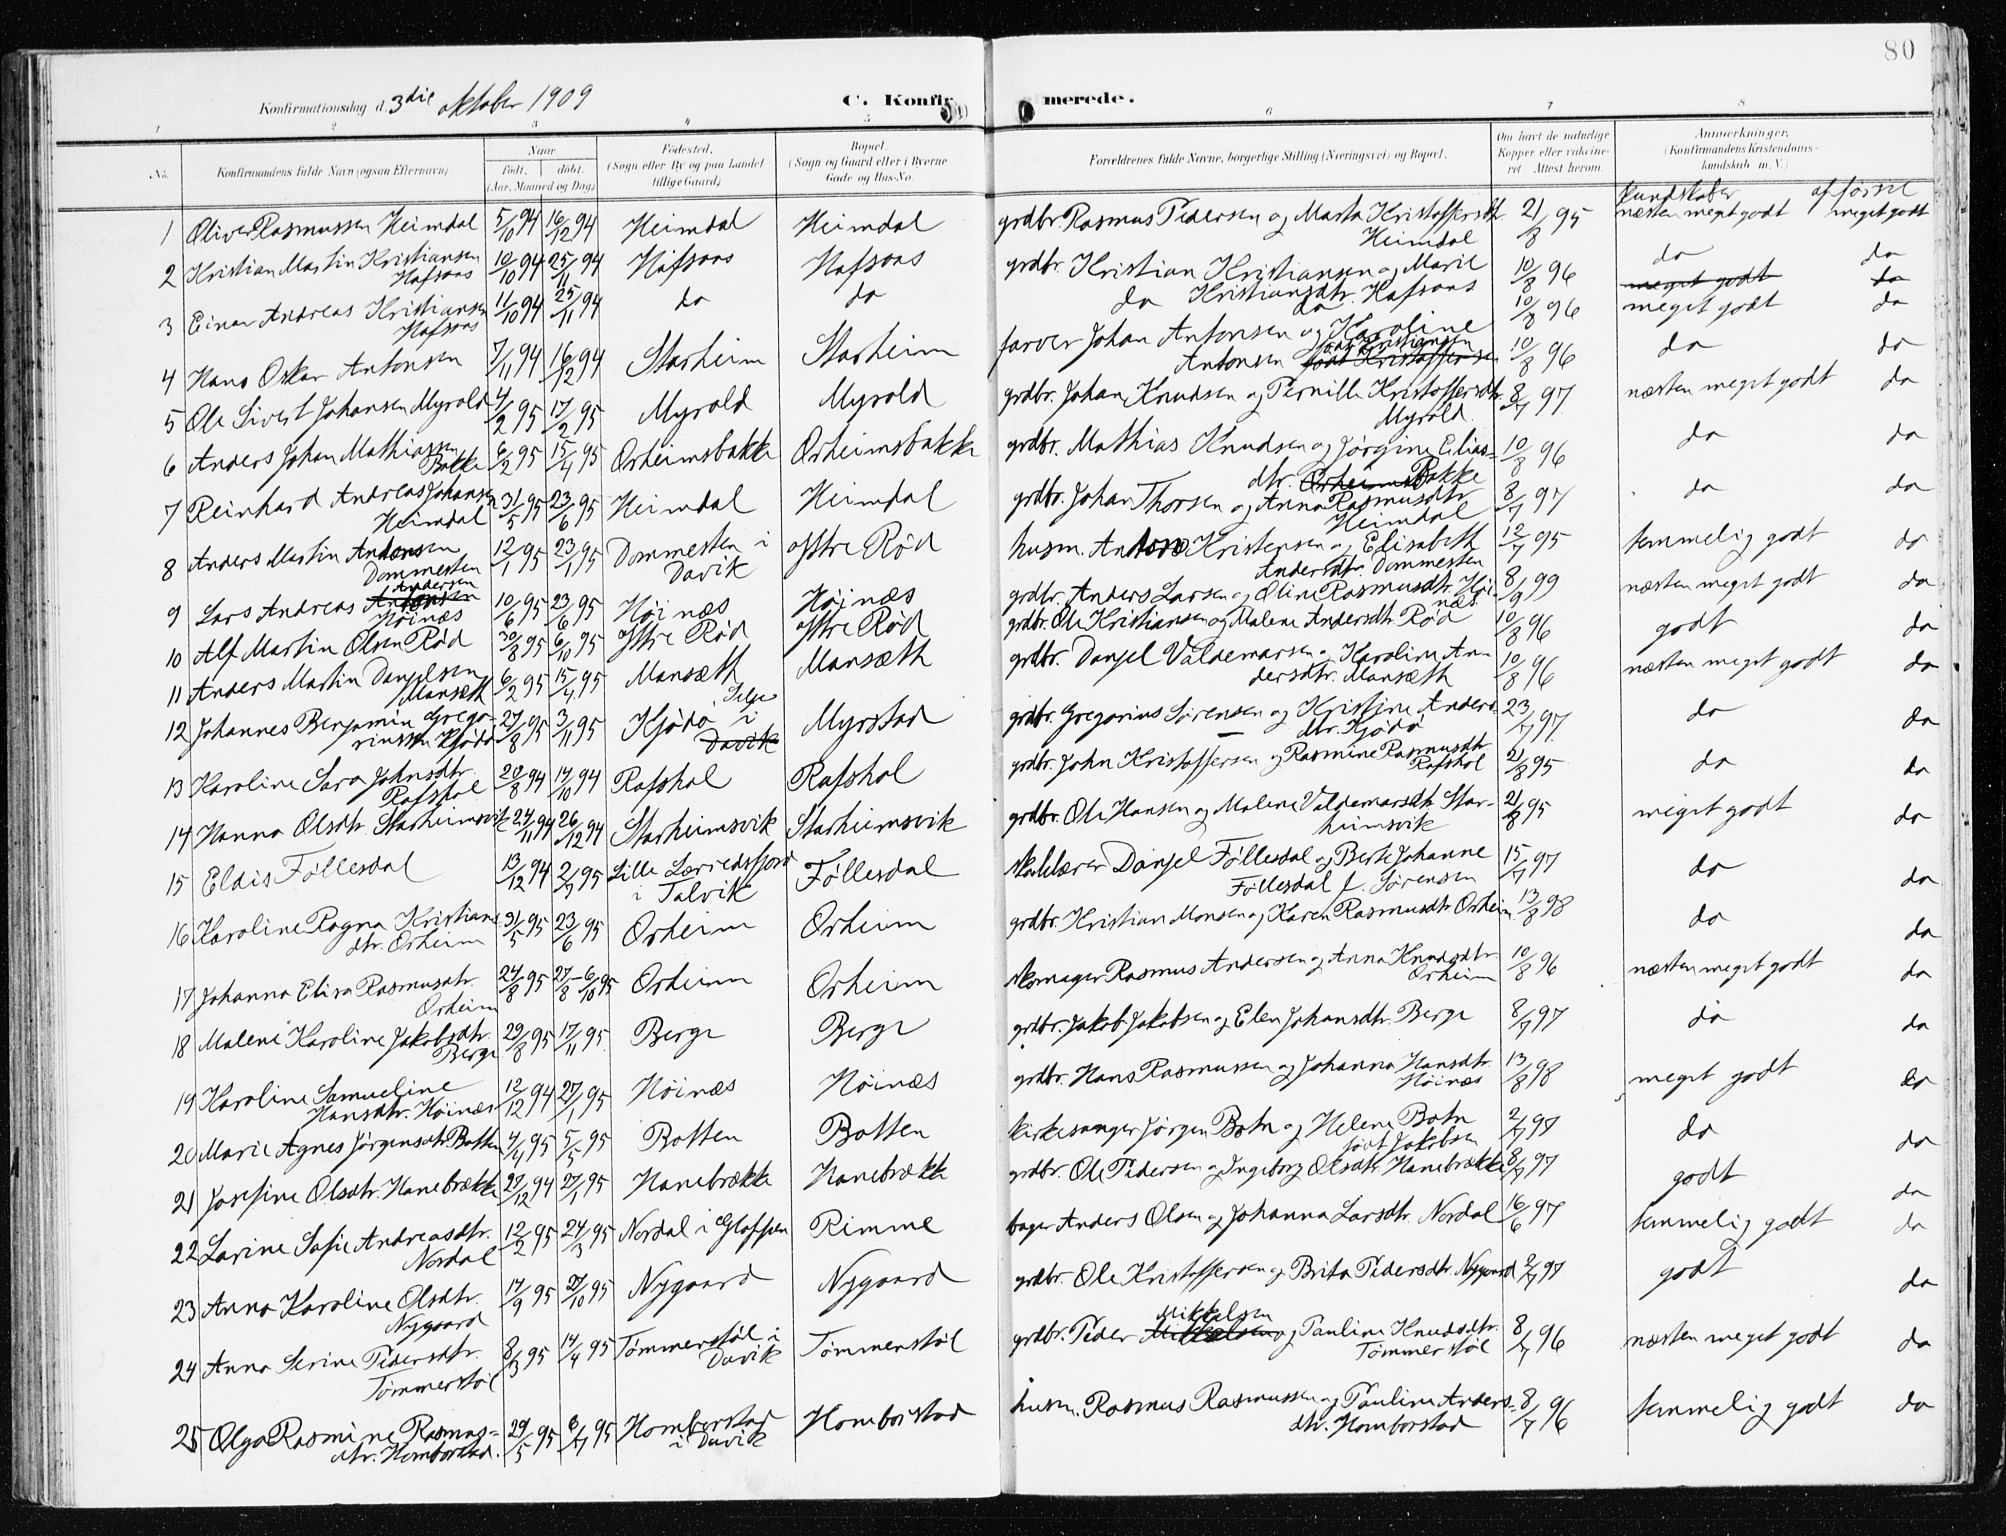 80
Konfirmationsdag d. 3die oktober 1909
C. Konfir merede.
1 2 3 4 5 6 7 8
No. Konfirmandens fulde Navn (ogsaa Efternavn) Naar født, døbt. (Aar, Maaned og Dag) Fødested. (Sogn eller By og paa Landet tillige Gaard) Bopæl. (Sogn og Gaard eller i Byerne Gade og Hus-No. Forældrenes fulde Navne, borgerlige Stilling (Næringsvei) og Bopæl. Om havt de naturlige Kopper eller vakcineret. Attest herom. Anmærkninger. (Konfirmandens Kristendomskundskab m. V.)
kundskaber
1 Oliver Rasmussen Heimdal 5/10 94 16/12 94 Heimdal Heimdal grdbr. Rasmus Pedersen og Marta Kristoffersdtr. Heimdal 21/8 95 næsten meget godt meget godt
2 Kristian Martin Kristiansen Hafsaas 10/10 94 25/11 94 Hafsaas Hafsaas grdbr. Kristian Kristiansen og Marie Kristiansdtr. Hafsaas 10/8 96 do do
meget godt do
3 Einar Andreas Kristiansen Hafsaas 11/10 94 25/11 94 do do do do 10/8 96 meget godt do
4 Hans Oskar Antonsen 7/11 94 16/12 94 Starheim Starheim farver Johan Antonsen og Karoline Antonsen født Kristoffersen 10/8 96 do do
5 Ole Sivert Johansen Myrold 4/2 95 17/2 95 Myrold Myrold grdbr. Johan Knudsen og Pernille Kristoffersdtr. Myrold 8/7 97 næsten meget godt do
6 Anders Johan Mathiassen Bakke 6/2 95 15/4 95 Orheimsbakke Orheimsbakke grdbr. Mathias Knudsen og Jørgine Eliasdtr. Orheims Bakke 10/8 96 do do
7 Reinhard Andreas Johansen Heimdal 31/5 95 23/6 95 Heimdal Heimdal grdbr. Johan Thorsen og Anna Rasmusdtr. Heimdal 8/7 97 do do
8 Anders Martin Andersen Dommesten 12/1 95 23/1 95 Dommesten i Davik ystre Rød husm. Anders Kristensen og Elisabeth Andersdtr. Dommesten 12/7 95 temmelig godt do
9 Lars Andreas Antonsen Andersen Høinæs 10/6 95 23/6 95 Høinæs Høinæs grdbr. Anders Larsen og Oline Rasmusdtr. Høinæs 8/9 99 næsten meget godt do
10 Alf Martin Olsen Rød 30/8 95 6/10 95 ystre Rød ystre Rød grdbr. Ole Kristiansen og Malene Andersdtr. Rød 10/8 96 godt do
11 Anders Martin Danjelsen Mansæth 6/2 95 15/4 95 Mansæth Mansæth grdbr. Danjel Valdemarsen og Karoline Andersdtr. Mansæth 10/8 96 næsten meget godt do
12 Johannes Benjamin Gregoriussen Kjødø 27/8 95 3/11 95 Kjødø i Selje Davik Myrstad grdbr. Gregorius Sørensen og Kristine Andersdtr. Kjødø 23/7 97 do do
13 Karoline Sara Johnsdtr. Rafshol 20/8 94 14/10 94 Rafshol Rafshol grdbr. John Kristoffersen og Rasmine Rasmusdtr. Rafshol 21/8 95 do do
14 Hanna Olsdtr. Starheimsvik 24/11 94 26/12 94 Starheimsvik Starheimsvik grdbr. Ole Hansen og Malene Valdemarsdtr. Starheimsvik 21/8 95 meget godt do
15 Eldis Føllesdal 13/12 94 2/7 95 Lille Lærredsfjord i Talvik Føllesdal skolelærer Danjel Føllesdal og Berte Johanne Føllesdal f. Sørensen 15/7 97 do do
16 Karoline Ragna Kristiansdtr. Orheim 31/5 95 23/6 95 Orheim Orheim grdbr. Kristian Monsen og Karen Rasmusdtr. Orheim 13/8 98 do do
17 Johanna Elisa Rasmusdtr. Orheim 24/8 95 27/8 - 6/10 95 Orheim Orheim skomager Rasmus Andersen og Anna Knudsdtr. Orheim 10/8 96 næsten meget godt do
18 Malene Karoline Jakobsdtr. Berge 29/8 95 17/11 95 Berge Berge grdbr. Jakob Jakobsen og Elen Johansdtr. Berge 8/7 97 do do
19 Karoline Samueline Hansdtr. Høinæs 12/12 94 27/1 95 Høinæs Høinæs grdbr. Hans Rasmussen og Johanna Hansdtr. Høinæs 13/8 98 meget godt do
20 Marie Agnes Jørgensdtr. Botten 4/4 95 5/5 95 Botten Botten kirkesanger Jørgen Botn og Helene Botn født Jakobsen 2/7 97 do do
21 Josefine Olsdtr. Hanebrække 29/12 94 27/1 95 Hanebrække Hanebrække grdbr. Ole Pedersen og Ingeborg Olsdtr. Hanebrække 8/7 97 godt do
22 Larine Sofie Andreasdtr. Nordal 12/2 95 24/3 95 Nordal i Gloppen Rimme bager Anders Olsen og Johanna Larsdtr. Nordal 16/6 97 temmelig godt do
23 Anna Karoline Olsdtr. Nygaard 17/9 95 27/10 95 Nygaard Nygaard grdbr. Ole Kristoffersen og Brita Pedersdtr. Nygaard 2/7 97 godt do
24 Anna Serine Pedersdtr. Tømmerstøl 8/3 95 14/4 95 Tømmerstøl i Davik Tømmerstøl grdbr. Peder Mikkelsen og Pauline Knudsdtr. Tømmerstøl 8/7 96 næsten meget godt do
25 Olga Rasmine Rasmusdtr. Homborstad. 29/5 95 8/7 95 Homborstad i Davik Homborstad husm. Rasmus Rasmussen og Pauline Andersdtr. Homborstad 8/7 96 temmelig godt do